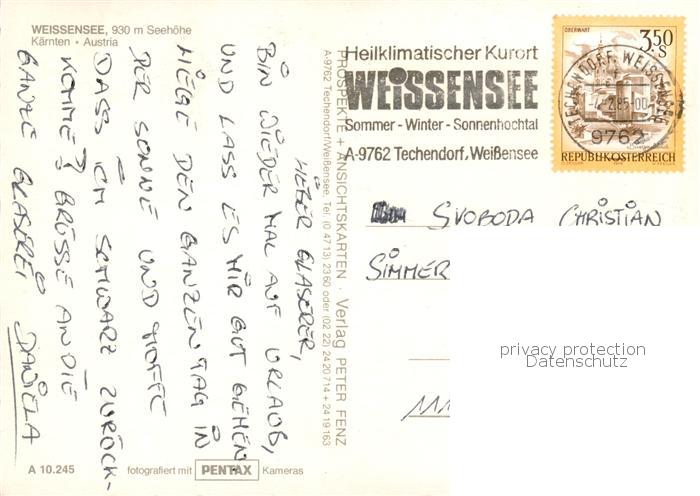 WEISSENSEE, 930 m Seehöhe
Kärnten • Austria
LIEBER GLASERER,
BIN WIEDER MAL AUF URLAUB,
UND LASS ES MIR GUT GEHEN.
LIEGE DEN GANZEN TAG IN
DER SONNE UND HOFFE
DASS ICH SCHWARZ ZURÜCK-
KOMME! GRÜSSE AN DIE
GANZE GLASEREI DANIELA
A 10.245
fotografiert mit PENTAX Kameras
PROSPEKTE + ANSICHTSKARTEN · Verlag PETER FENZ
A-9762 Techendorf/Weißensee, Tel. (0 47 13) 23 60 oder (02 22) 24 20 714 + 24 19 163
Heilklimatischer Kurort
WEISSENSEE
Sommer - Winter - Sonnenhochtal
A-9762 Techendorf, Weißensee
OBERWART
3.50
S
TECHENDORF, WEISSENSEE
9762
REPUBLIK ÖSTERREICH
SVOBODA CHRISTIAN
SIMMER
privacy protection
Datenschutz